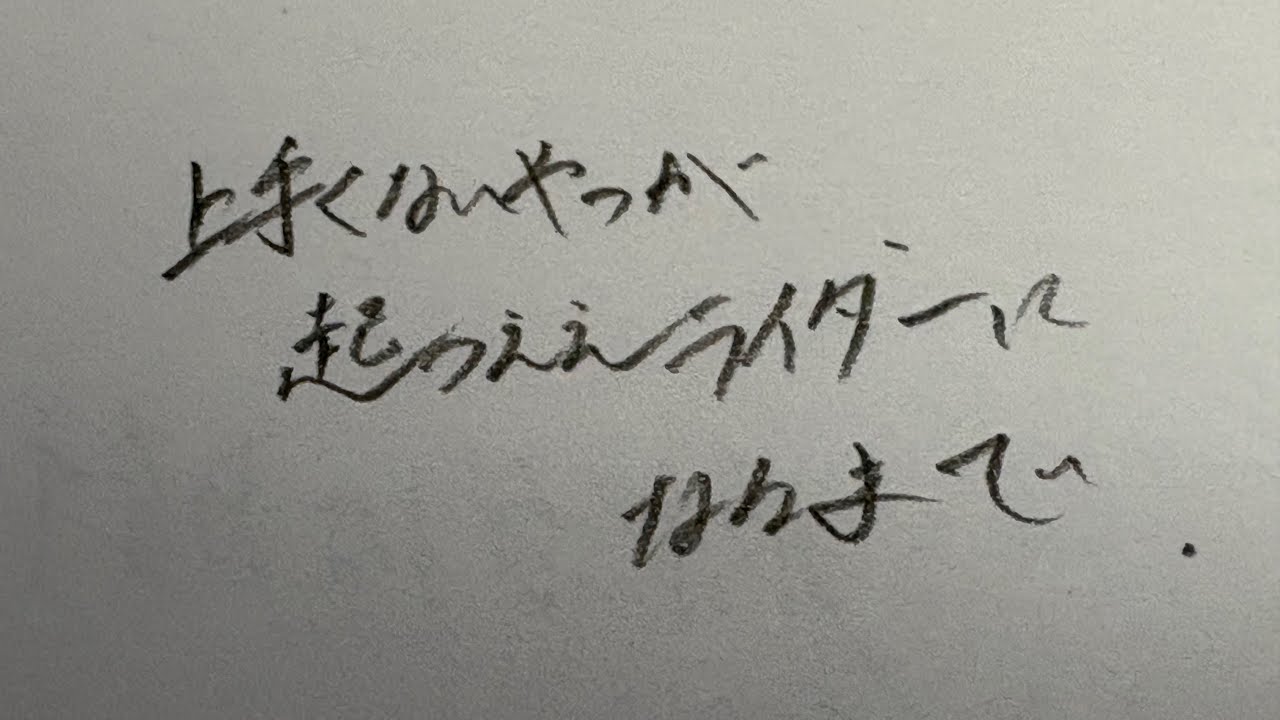 上手くないやつが
超つええライダーに
なるまで.